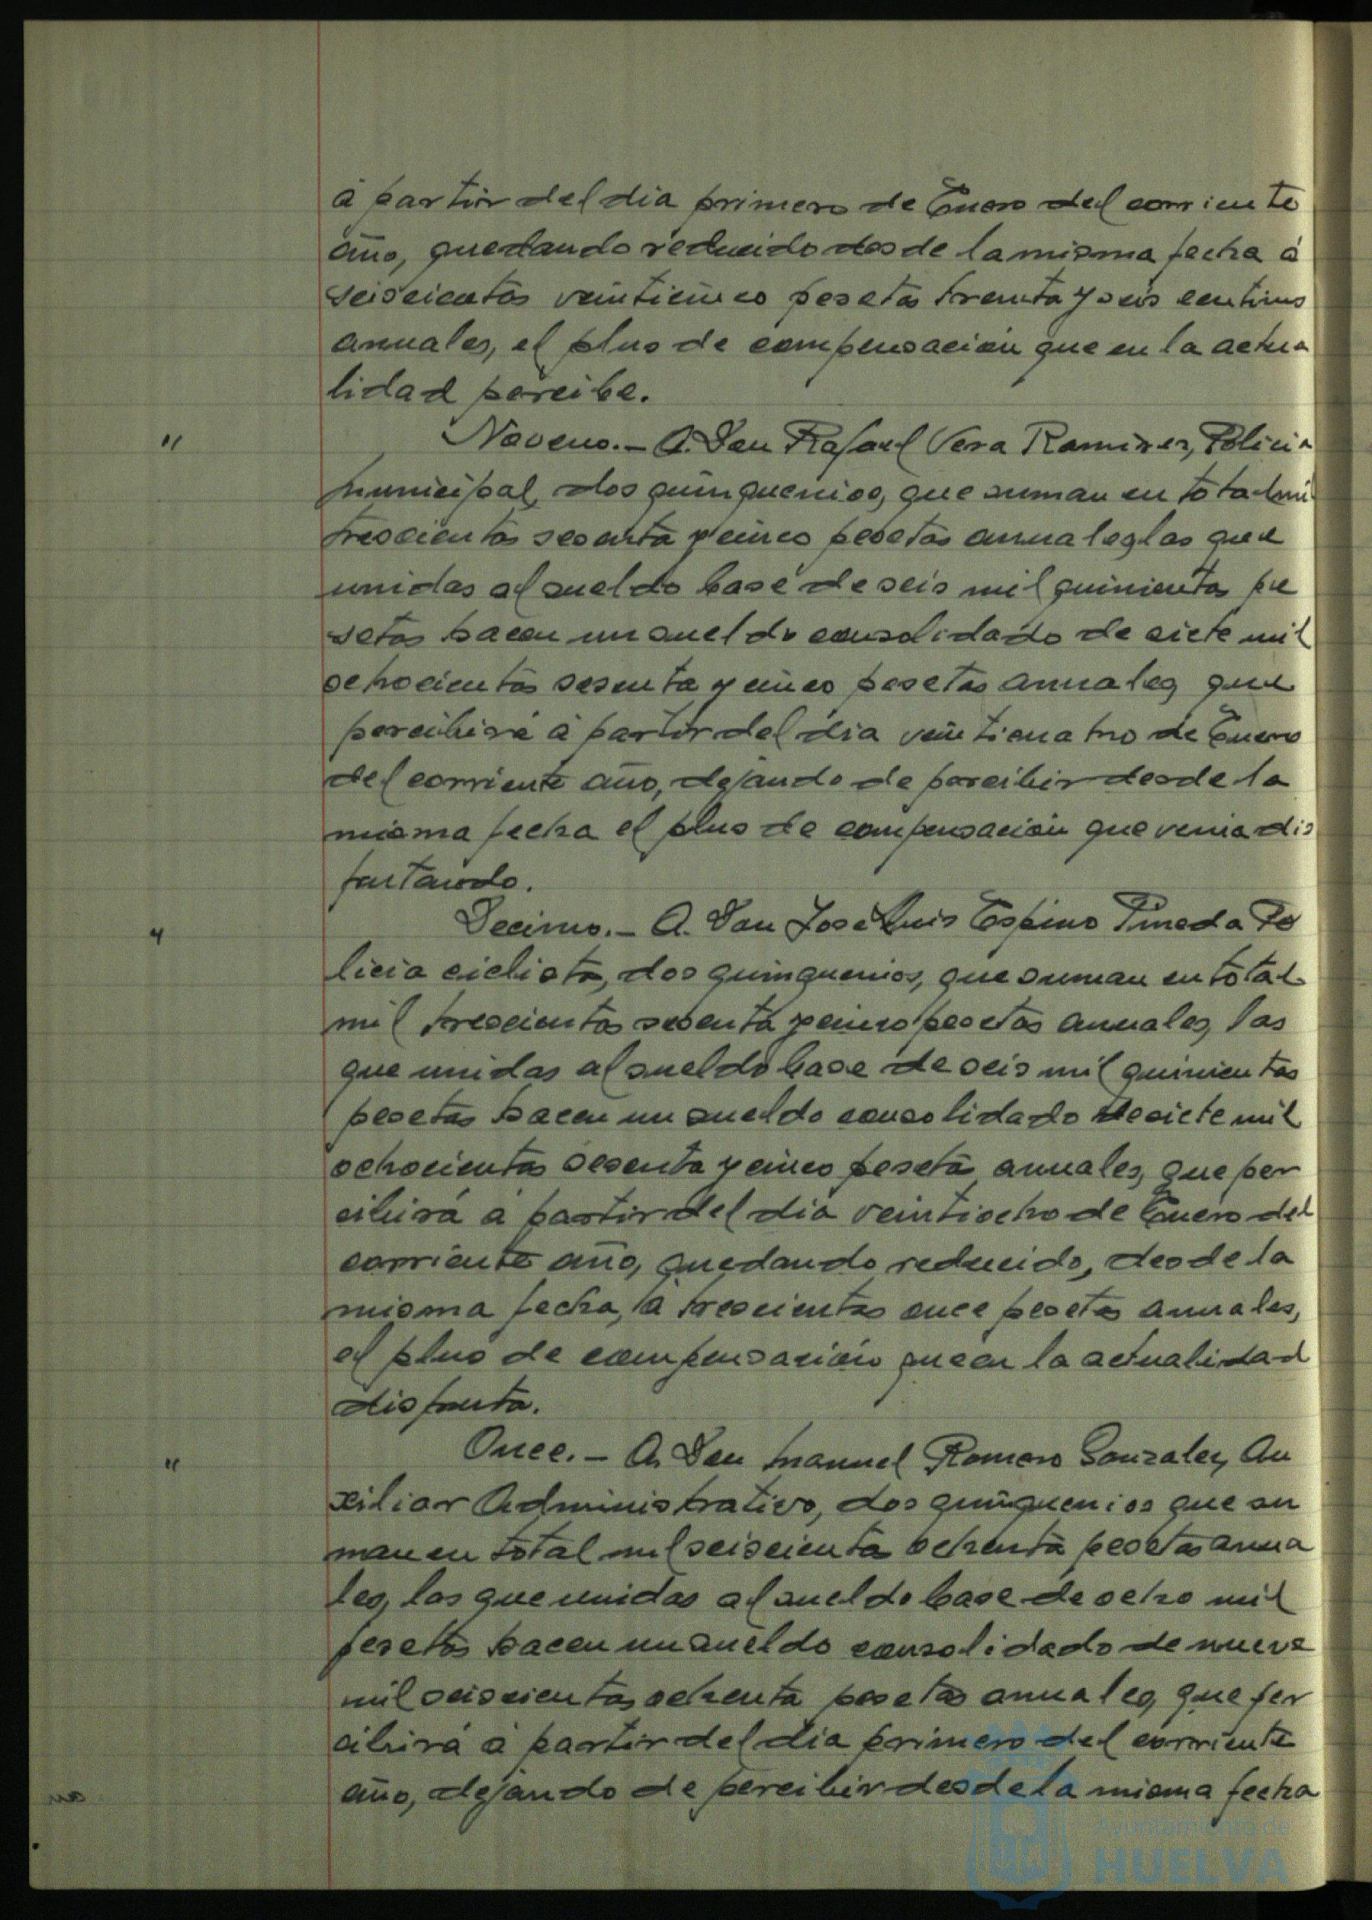 á partir del dia primero de Enero del corriente
año, quedando reducido desde la misma fecha á
seiscientas veinticinco pesetas treinta y seis centimos
anuales, el plus de compensación que en la actua
lidad percibe.
" Noveno.- A Don Rafael Vera Ramirez, Policia
municipal, dos quinquenios, que suman en total mil
trescientas sesenta y cinco pesetas anuales, las que
unidas al sueldo base de seis mil quinientas pe
setas hacen un sueldo consolidado de siete mil
ochocientas sesenta y cinco pesetas anuales, que
percibirá á partir del dia veinticuatro de Enero
del corriente año, dejando de percibir desde la
misma fecha el plus de compensación que venia dis
frutando.
" Decimo.- A Don José Luis Espino Pineda Po
licia ciclista, dos quinquenios, que suman en total
mil trescientas sesenta y cinco pesetas anuales, las
que unidas al sueldo base de seis mil quinientas
pesetas hacen un sueldo consolidado de siete mil
ochocientas sesenta y cinco pesetas anuales, que per
cibirá á partir del dia veintiocho de Enero del
corriente año, quedando reducido, desde la
misma fecha, á trescientas once pesetas anuales,
el plus de compensación que en la actualidad
disfruta.
" Once.- A Don Manuel Romero Gonzalez, Au
xiliar Administrativo, dos quinquenios que su
man en total mil seiscientas ochenta pesetas anua
les, las que unidas al sueldo base de ocho mil
pesetas hacen un sueldo consolidado de nueve
mil seiscientas ochenta pesetas anuales, que per
cibirá á partir del dia primero del corriente
año, dejando de percibir desde la misma fecha
Ayuntamiento de
HUELVA